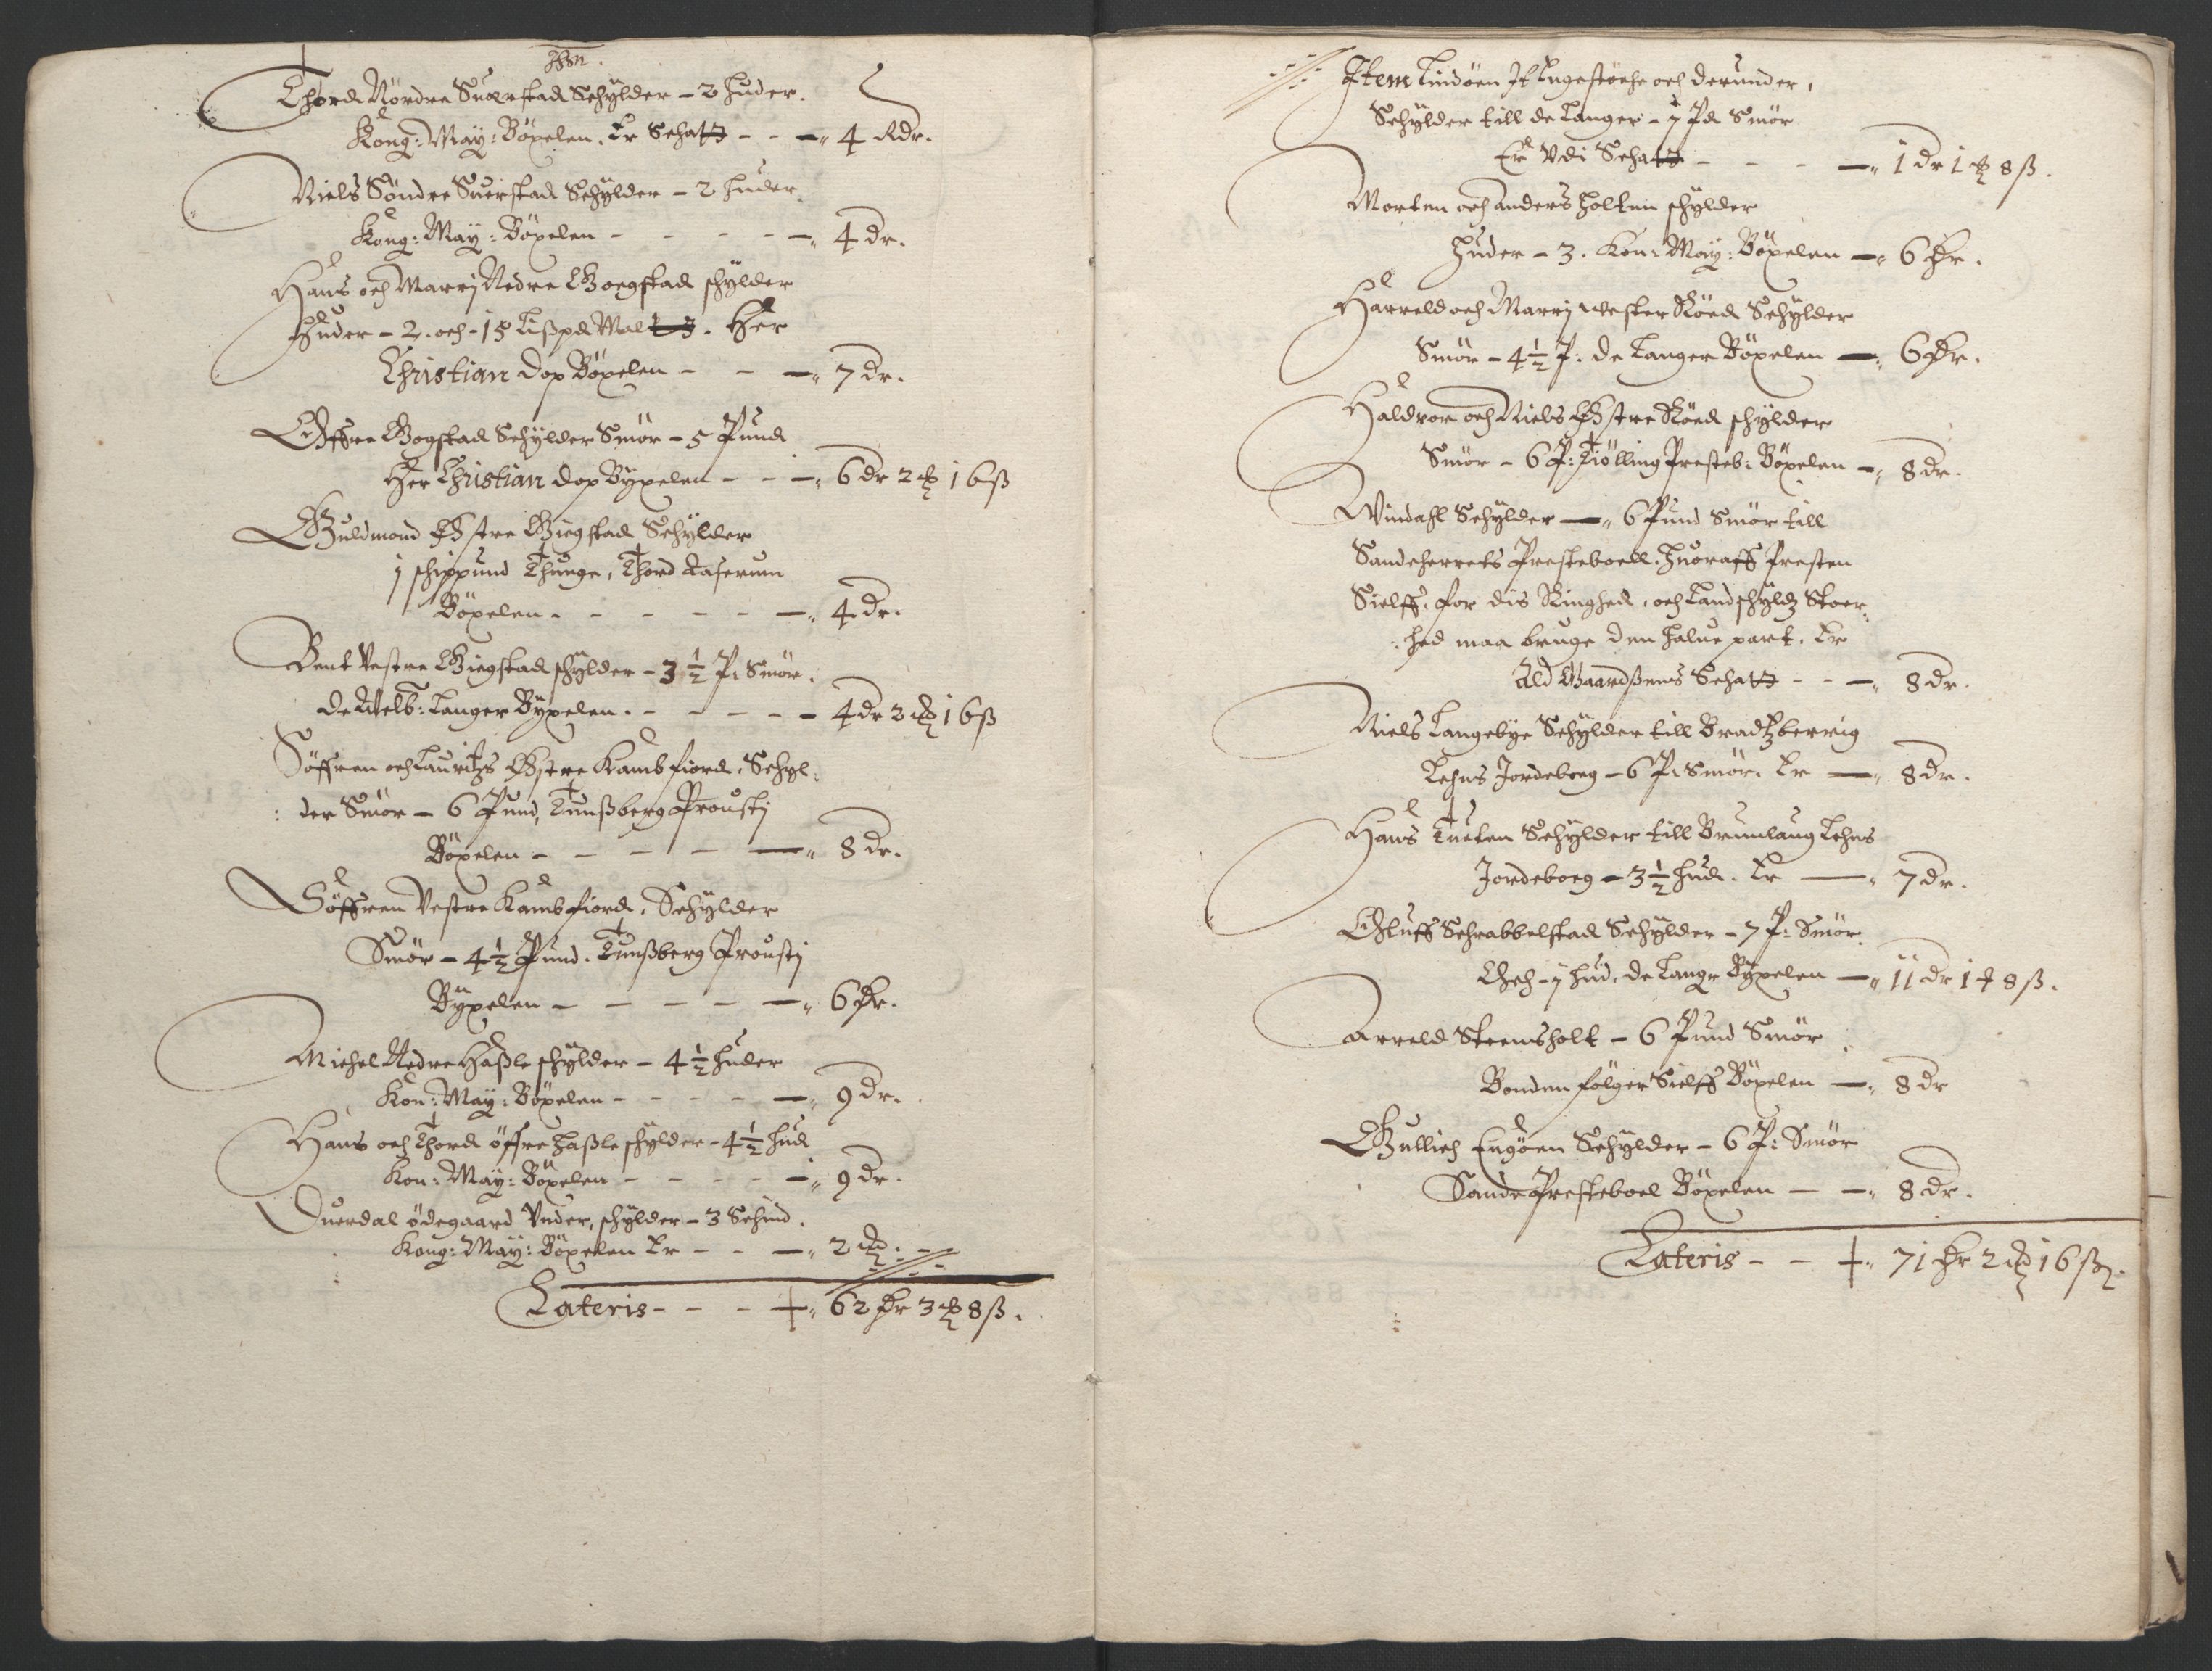 Thord Nördre Suerstad Schylder - 2 huder.
Kong: May: Böxelen. Er Schatt - - - 4 Rdr.
Niels Söndre Suerstad Schylder - 2 huder
Kong: May: Böxelen - - - - 4 dr.
Hans och Marrj Nedre Gogstad schylder
Huder - 2. och - 15 Lißpd Malt. Her
Christian dop Böxelen - - - 7 dr.
Öffre Gogstad Schylder Smör - 5 Pund
Her Christian dop Byxelen - - - 6 dr 2 16 ß
Guldmond Östre Giegstad Schylder
j schippund Thunge, Thord
Böxelen - - - - - 4 dr.
Bent Vestre Giegstad schylder - 3 ½ P: Smör.
de Welb: Langer Byxelen. - - - - - 4 dr 2 16 ß
Söffren och Lauritzs Östre Kambfiord, Schyl:
: der Smör - 6 Pund, Tunßberg Proustj
Böxelen - - - - - 8 dr.
Söffren Vestre Kambfiord, Schylder
Smör - 4 ½ Pund. Tunßberg Proustj
Byxelen - - - - - 6 dr.
Michel Nedre Haßle schylder - 4 ½ huder
Kon: May: Böxelen - - - - - 9 dr.
Hans och Thord öffre Haßle schylder - 4 ½ hud
Kon: May: Böxelen - - - - - 9 dr.
Duerdal ödegaard Vnder, schylder - 3 Schind.
Kong: May: Böxelen Er - - - 2
Lateris - - - 62 dr 3 8 ß.
Item Lindöen It Engestöche och derunder,
Schylder till de Langer - j Pd Smör
Er Vdi Schatt - - - - 1 dr 1 8 ß.
Morten och Anders Holten schylder
Huder - 3. Kon: May: Böxelen - 6 dr.
Harreld och Marrj vester Röed Schylder
Smör - 4 ½ P: de Langer Böxelen - 6 dr.
Haldvor och Niels Östre Röed schylder
Smör - 6 P: Tiölling Presteb: Böxelen - 8 dr.
Windahl Schylder - 6 Pund Smör till
Sandeherrets Presteboell. Huoraff Presten
Sielff, for dis Ringhed, och Landschyldz Stoer:
: hed maa bruge den halue part. Er
Ald Gaardßens Schatt - - - 8 dr.
Niels Langebye Schylder till Bradtzberrig
Lehns Jordebog - 6 P: Smör. Er - 8 dr.
Hans Tueten Schylder till Brunlaug Lehns
Jordeboeg - 3 ½ hud. Er - 7 dr.
Oluff Schrabbelstad Schylder - 7 P: Smör
Och - j hud, de Langr Byxelen - 11 dr 1 8 ß.
Arreld Steensholt - 6 Pund Smör
Bonden fölger Sielff Böxelen - 8 dr
Gullich Engöen Schylder - 6 P: Smör
Sande Presteboel Böxelen - - 8 dr.
Lateris - - 71 dr 2 16 ß.